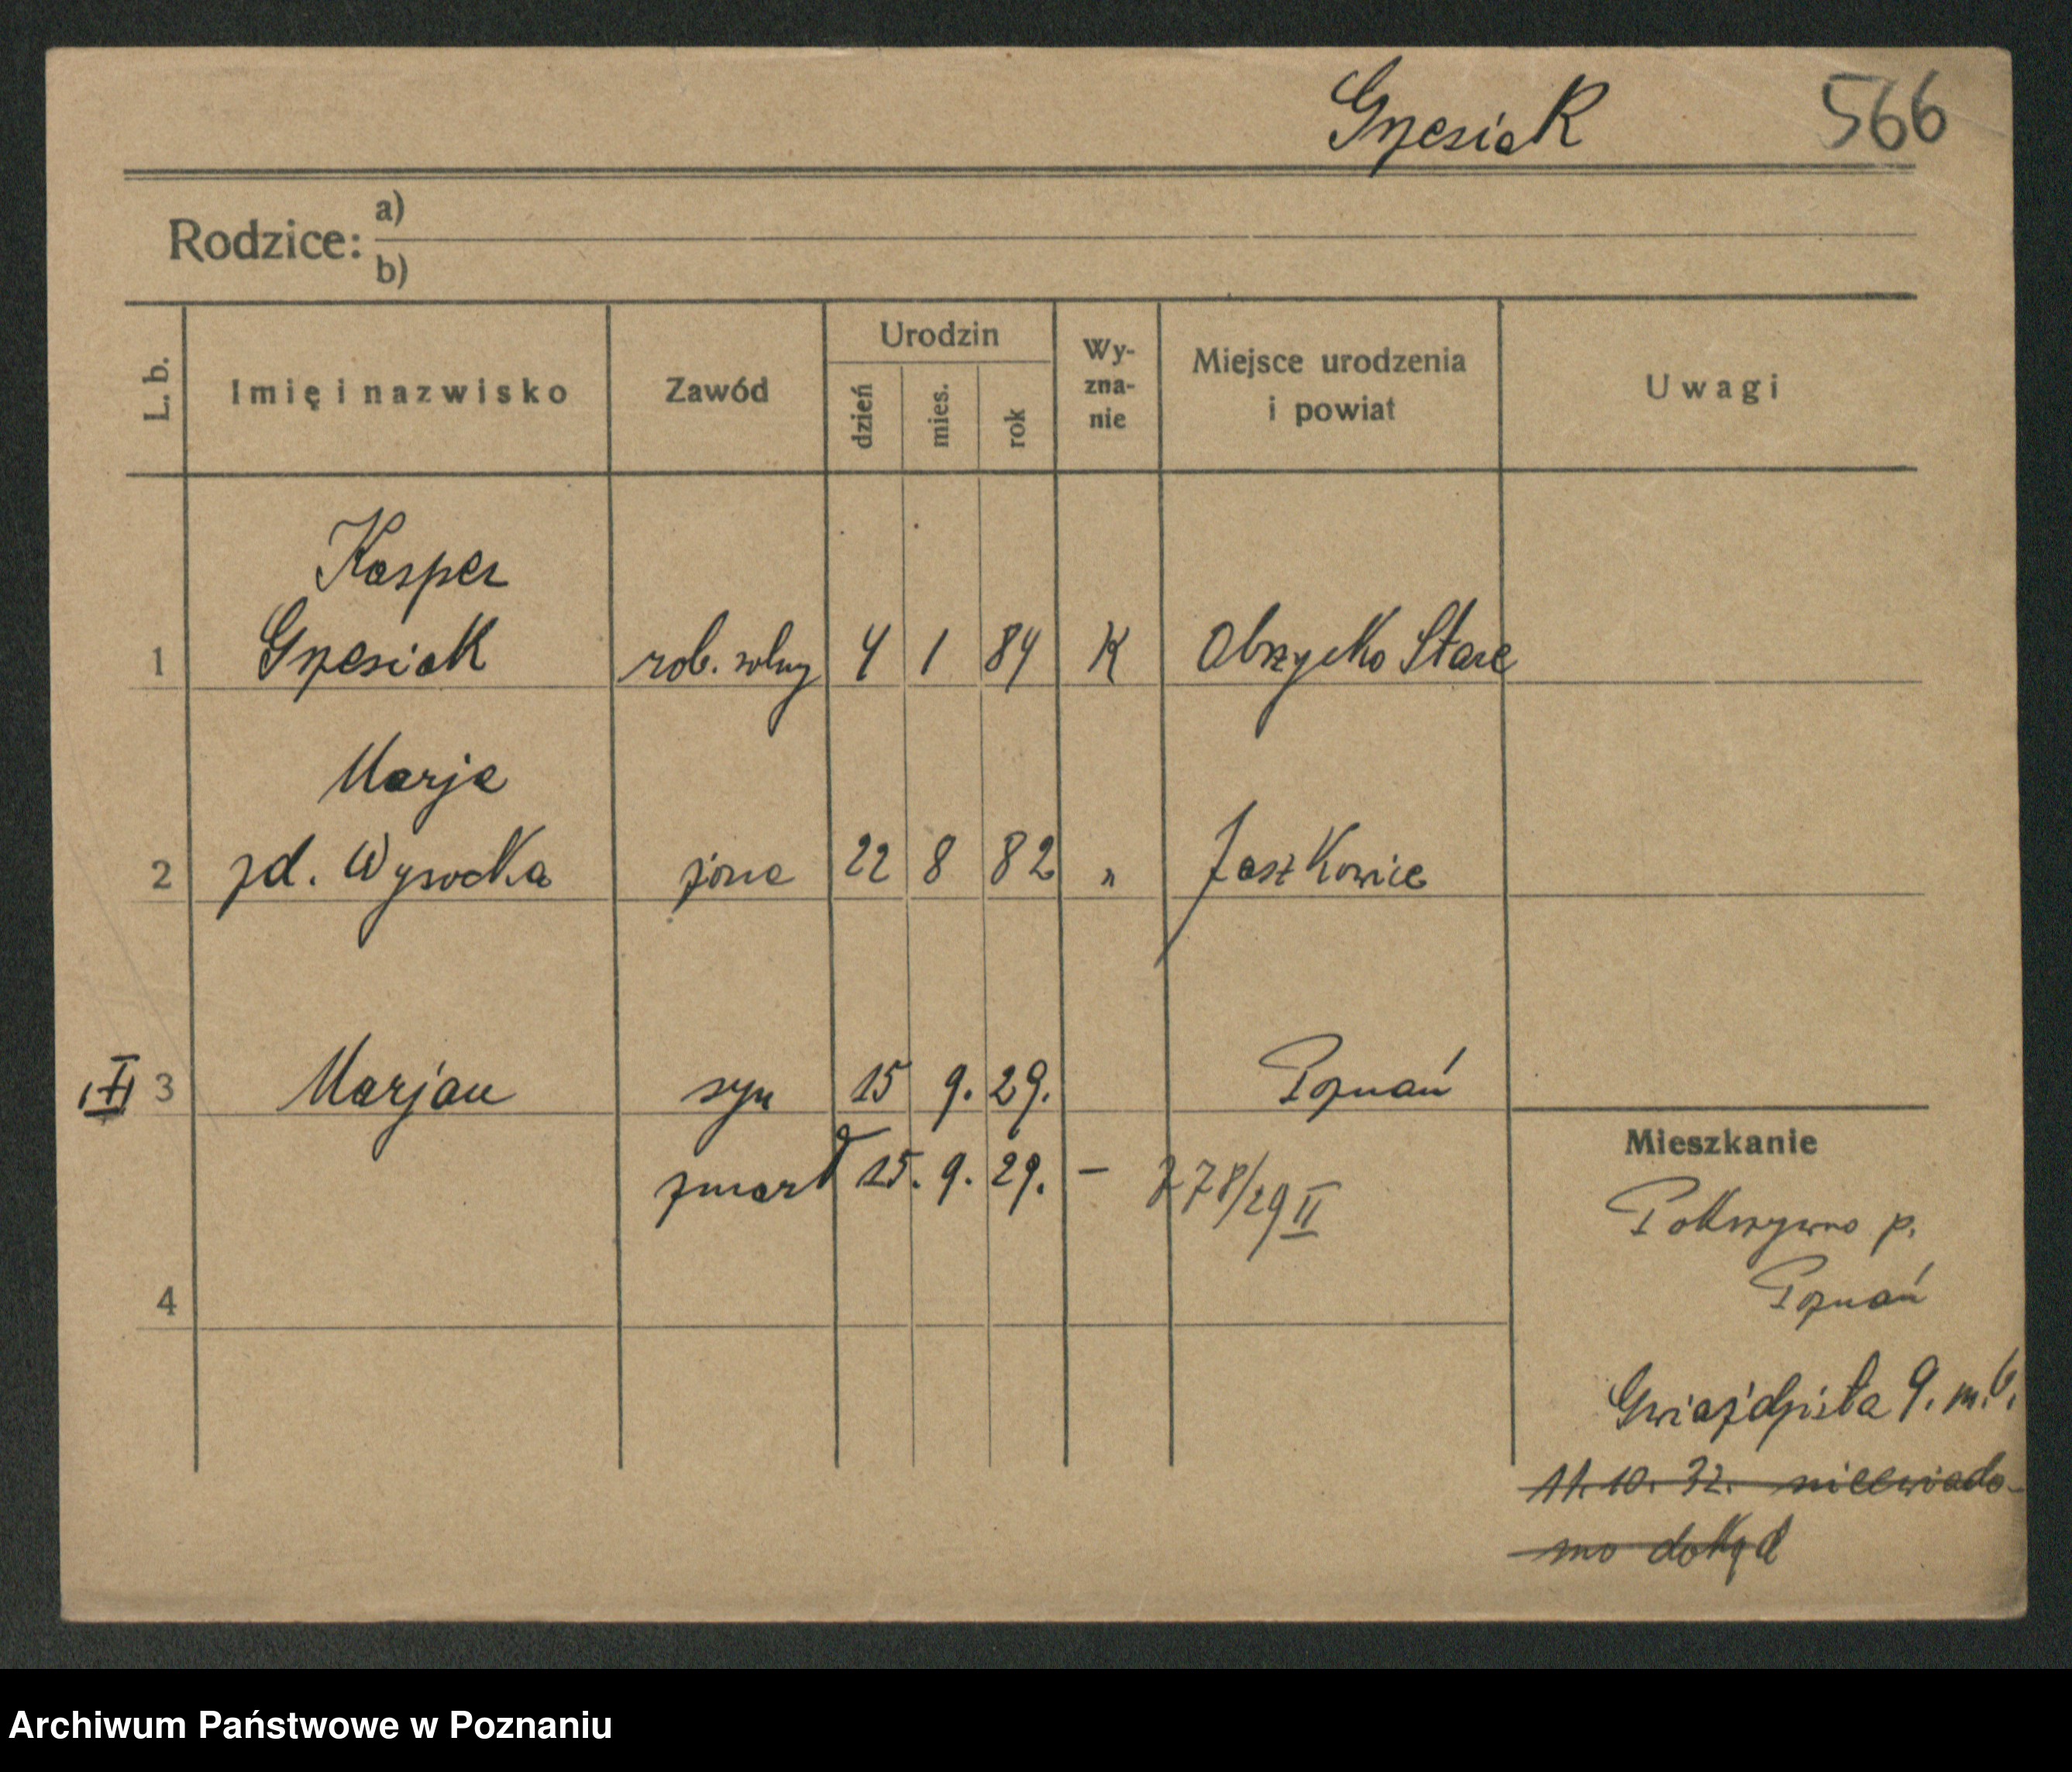 Grzesiak 566
Rodzice: a)
b)
L. b. Imię i nazwisko Zawód Urodzin dzień mies. rok Wy-zna-nie Miejsce urodzenia i powiat Uwagi
Kasper
1 Grzesiak rob. rolny 4 1 84 K Obrzycko Stare
Marja
2 zd. Wysocka żona 22 8 82 " Jaszkowice
3 Marjan syn 15 9. 29. Poznań
zmarł 15. 9. 29. — 778/29 II
4
Mieszkanie
Pokrzywno p.
Poznań
Gwiaździsta 9. m. 6.
11.10.32. niewiado-
mo dokąd
Archiwum Państwowe w Poznaniu